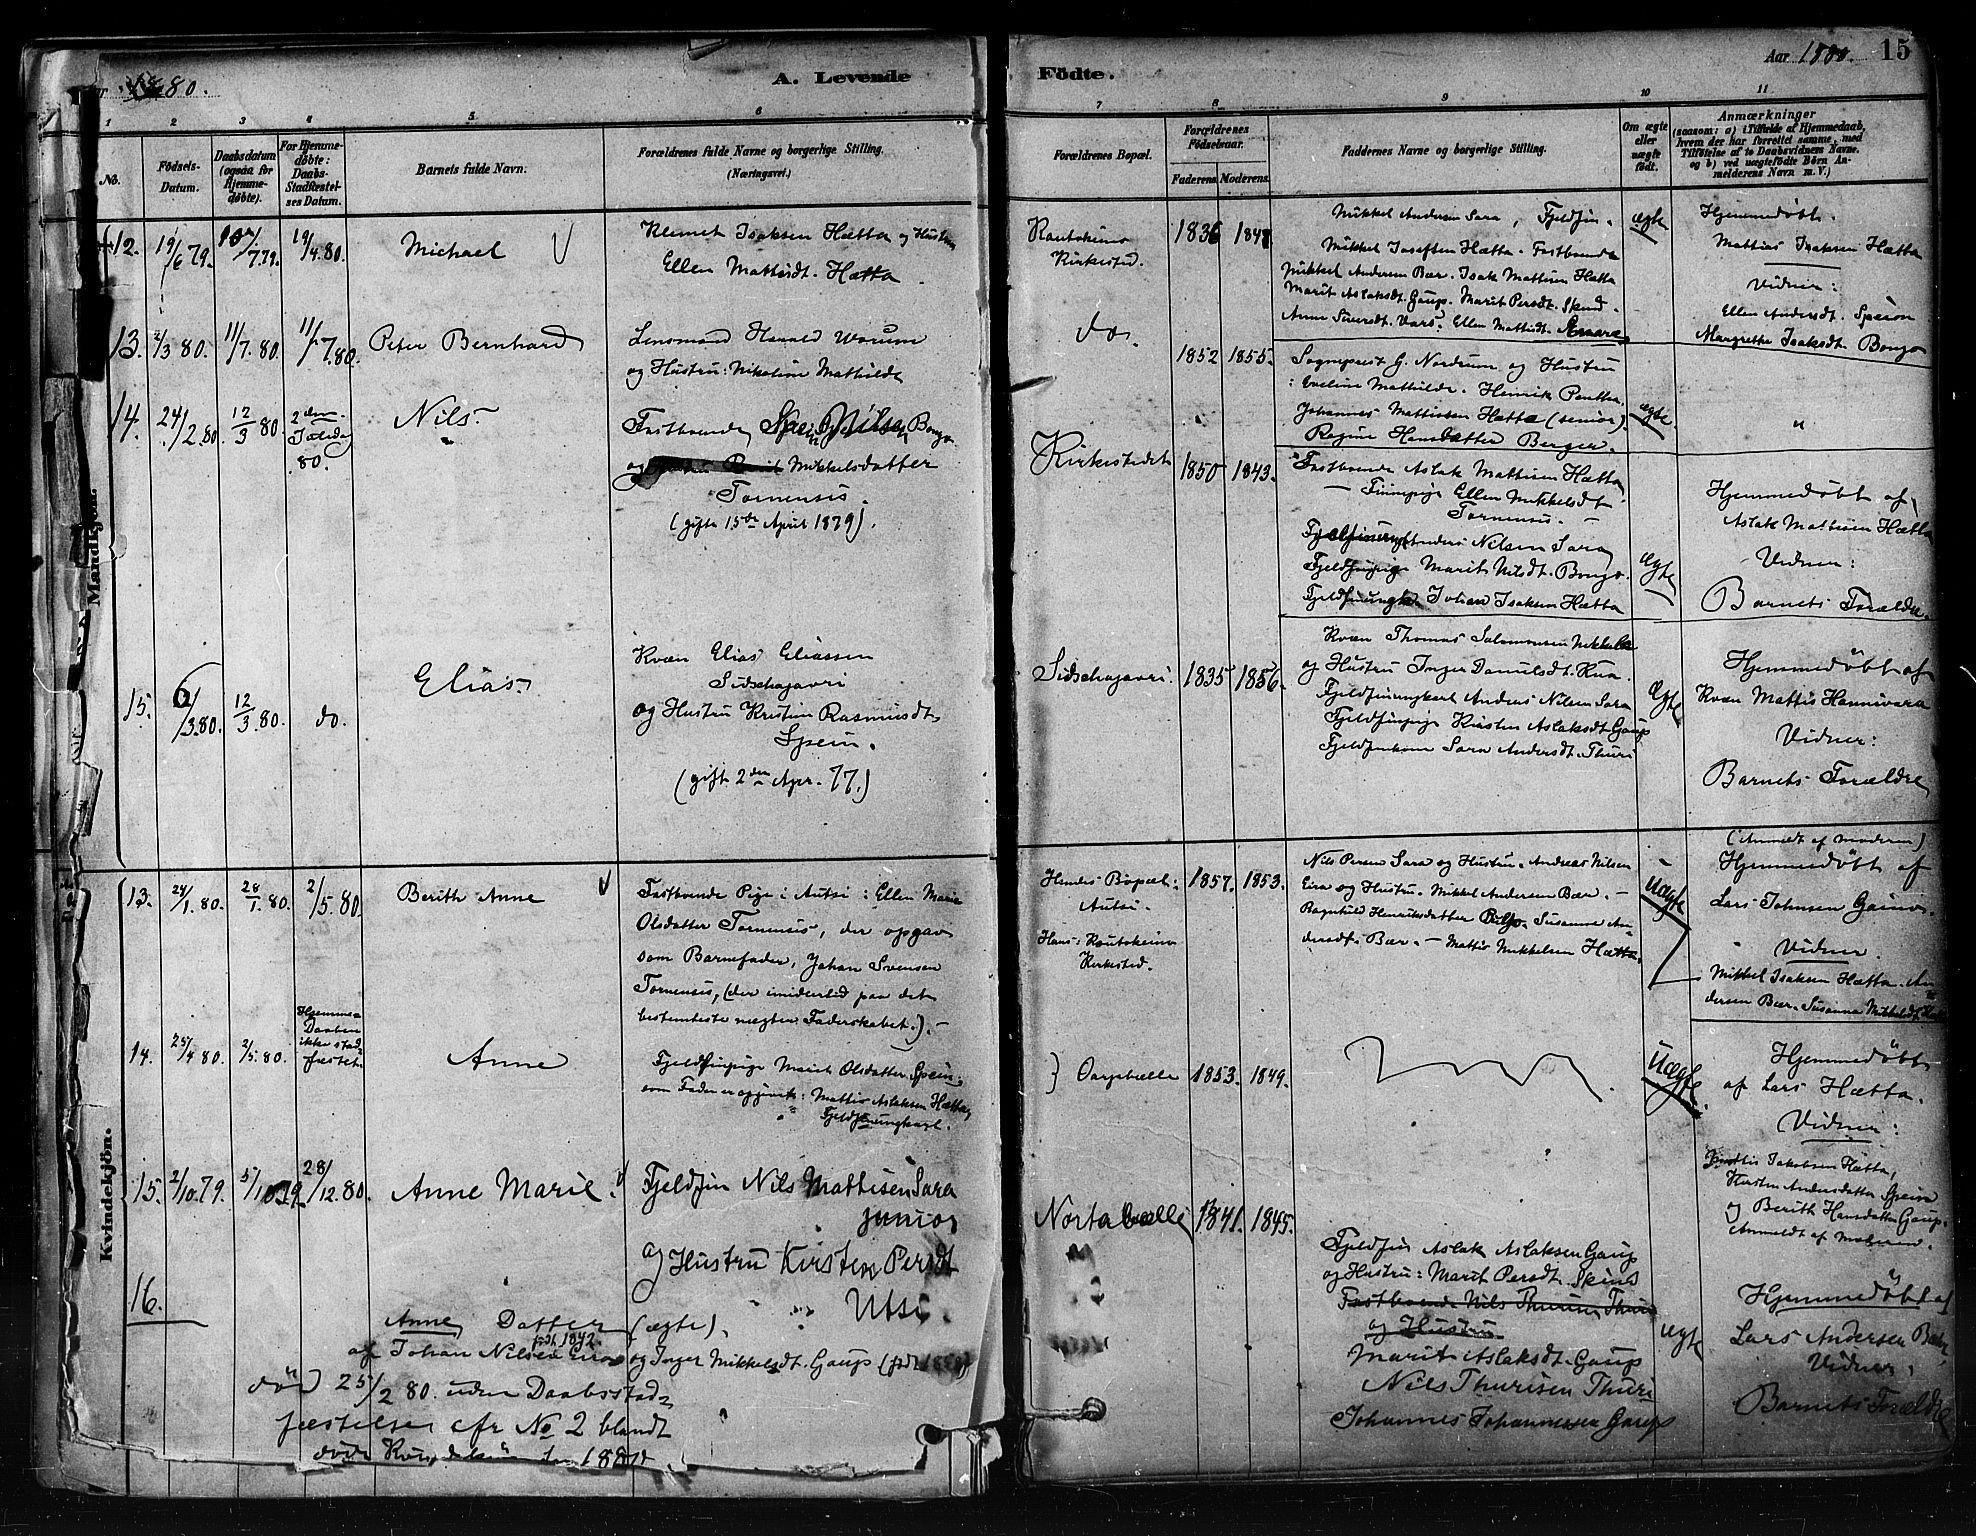 1880.
A. Levende
1 2 3 4 5 6
No.
Födsels-Datum.
Daabsdatum (ogsaa for Hjemmedøbte).
For Hjemmedøbte: Daabs-Stadfæstelses Datum.
Barnets fulde Navn.
Forældrenes fulde Navne og borgerlige Stilling.
(Næringsvei.)
Mandkjön.
12. 19/6 79. 79. 19/4.80 Michael
Klemet Isaksen Hætta og Hustru
Ellen Mattisdt. Hætta
13. 2/3 80. 11/7. 80. 11/7.80. Peter Bernhard
Lensmand Harald Worum
og Hustru: Nikoline Mathilde
14. 24/2.80 12/3 80. 2den Juledag 80. Nils.
Fastboende Nilsen Bongo
og Mikkelsdatter
Tornensis.
(gifte 15de April 1879).
15. 6/3.80. 12/3.80. do. Elias.
Kvæn Elias Eliassen
Sidschajavri
og Hustru Kristine Rasmusdt.
Spein.
(gift 2den Apr. 77.)
Kvindekjön.
13. 24/1.80. 28/1.80. 2/5.80. Berith Anne
Fastboende Pige i Autsi: Ellen Marie
Olsdatter Tornensis, der opgav
som Barnefader, Johan Svensen
Tornensis, (der imidlertid paa det
bestemteste nægter Faderskabet.). -
14. 25/4 80. 2/5.80. Hjemme-Daaben ikke stadfæstet. Anne
Fjeldfinpige Marit Olsdatter Spein.
som Fader er opgivet: Mattis Aslaksen Hætta,
Fjeldfinungkarl.
15. 2/10.79. 5/10.79. 28/12.80. Anne Marie.
Fjeldfin Nils Mattisen Sara
junior
og Hustru Kirsten Persdt
Utsi.
16.
Anne Datter (ægte).
af Johan Nilsen født 1842. og Inger Mikkelsdt. Gaup
død 25/2 80. uden Daabsstad-
fæstelse cfr No 2 blandt
døde
Födte.
Aar 1880. 15
7 8 9 10 11
Forældrenes Bopæl.
Forældrenes Födselsaar.
Faderens. Moderens.
Faddernes Navne og borgerlige Stilling.
Om ægte eller uægte født.
Anmærkninger
(saasom: a) i Tilfælde af Hjemmedaab, hvem der har forrettet samme, med Tilføielse af to Daabsvidners Navne, og b) ved uægtefödte Børn Anmelderens Navn m. V.)
Kautokeino
Kirkested.
1836
Mikkel Andersen Sara, Fjeldfin.
Mikkel Josefsen Hætta. Fastboende
Mikkel Andersen Bær. Isak Mattisen Hætta
Marit Aslaksdt. Gaup. Marit Persdt. Skum
Anne Vars. Ellen Mattisdt.
ægte
Hjemmedøbt.
Mattias Isaksen Hætta
Vidner:
Ellen Andersdt. Spein
Margrethe Isaksdt. Bongo
do.
1852 1855.
Sogneprest G. Nordrum og Hustru
: Eveline Mathilde. Henrik Penttæ.
Johannes Mattisen Hætta (senior).
Regine Hansdatter Berger.
ægte.
"
Kirkestedet
1850 1843.
Fastboende Aslak Mattisen Hætta
- Finnepige Ellen Mikkelsdt
Tornensis. -
Anders Nilsen Sara
Fjeldfinpige Marit Nilsdt. Bongo.
Johan Isaksen Hætta
ægte
Hjemmedøbt af
Aslak Mattisen Hætta
Vidner:
Barnets Forældre.
Sidschajavri.
1835 1856.
Kvæn Thomas Salomonsen
og Hustru Inger Danielsdt. Kua.
Fjeldfinungkarl Anders Nilsen Sara
Fjeldfinpige Kirsten Aslaksdt Gaup
Fjeldfinkone Sara Andersdt. Thuri
ægte
Hjemmedøbt af
Kvæn Mattis Hannivara
Vidner:
Barnets Forældre
Hendes Bopæl:
Autsi.
Hans: Kautokeino
Kirkested.
1857. 1853.
Nils Persen Sara og Hustru. Andreas Nilsen
Eira og Hustru. Mikkel Andersen Bær. -
Ragnhild Henriksdatter Susanne An-
dersdt. Bær. - Mattis Mikkelsen Hætta.
Uægte
(Anmeldt af Moderen)
Hjemmedøbt af
Lars Johnsen Gainos.
Vidner:
Mikkel Isaksen Hætta. An-
dersen Bær. Susanna Mikkelsdt.
1853. 1849.
Uægte.
Hjemmedøbt
af Lars Hætta.
Vidner:
Jakobsen Hætta,
Kirsten Andersdatter Spein
og Berith Hansdatter Gaup.
Anmeldt af Moderen.
1841. 1845.
Fjeldfin Aslak Aslaksen Gaup
og Hustru: Marit Persdt. Spein
Fastboende Nils Thurisen Thuri
og Hustru
Marit Aslaksdt. Gaup
Nils Thurisen Thuri
Johannes Johannessen Gaup
ægte
Hjemmedøbt af
Lars Andersen Bær
Vidner.
Barnets Forældre